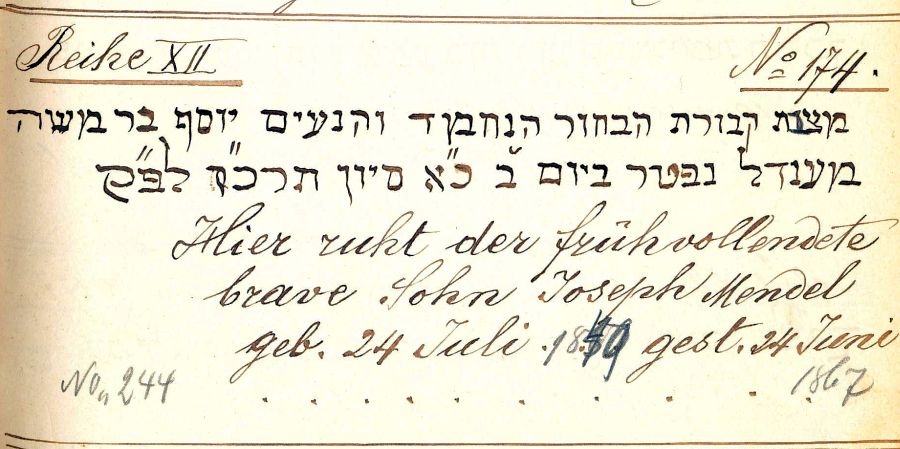 Reihe XII
No 174.
מצבת קבורת הבחור הנחמד והנעים יוסף בר משה
מענדל נפטר ביום ב' כ״א סיון תרכ״ז לפ״ק
Hier ruht der frühvollendete
brave Sohn Joseph Mendel
geb. 24 Juli gest. 24 Juni
No 244 1867